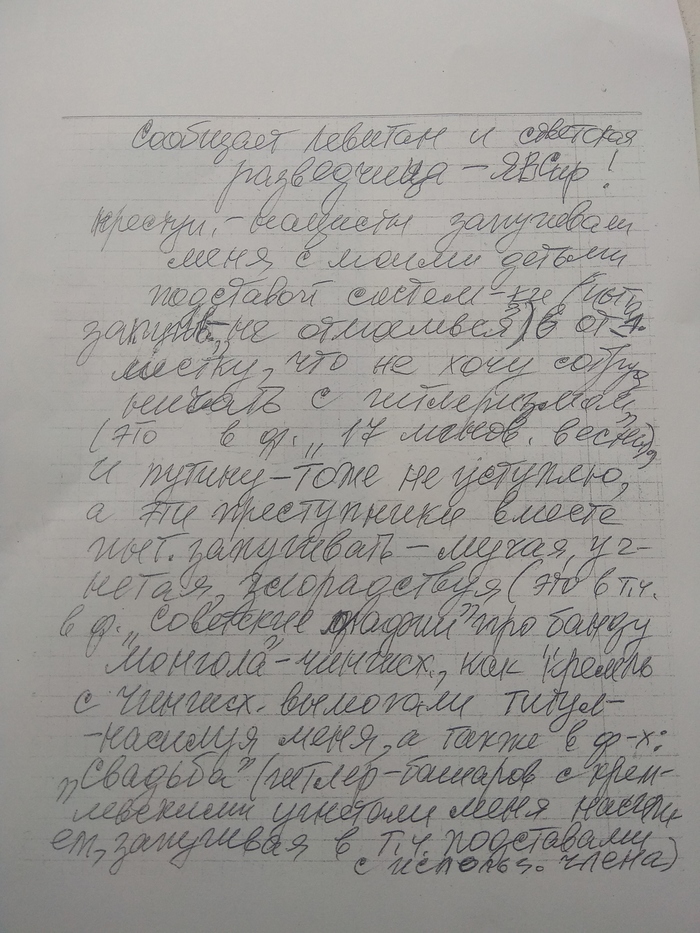 Сообщает левитан и советская
разведчица – ЯВСтр!
преступ. – нацисты запугивали
меня с моими детьми
подставой систем-ки (пыт.
запугив., не отмоемься) в от-
местку, что не хочу сотруд
ничать с гитлеризмом,
(это в ф. „17 мгнов. весны"),
И путину – тоже не уступлю,
а эти преступники вместе
пыт. запугивать – мучая, уг-
нетая, злорадствуя (это в т.ч.
в ф. „Советские мафии" про банду
„Монгола" – чингисх., как кремль
с чингисх. вымогали титул –
– насилуя меня, а также в ф-х:
„Свадьба" (гитлер – башаров с крем-
левскими угнетали меня насили
ем, запугивая в т.ч. подставами
с использ. члена)